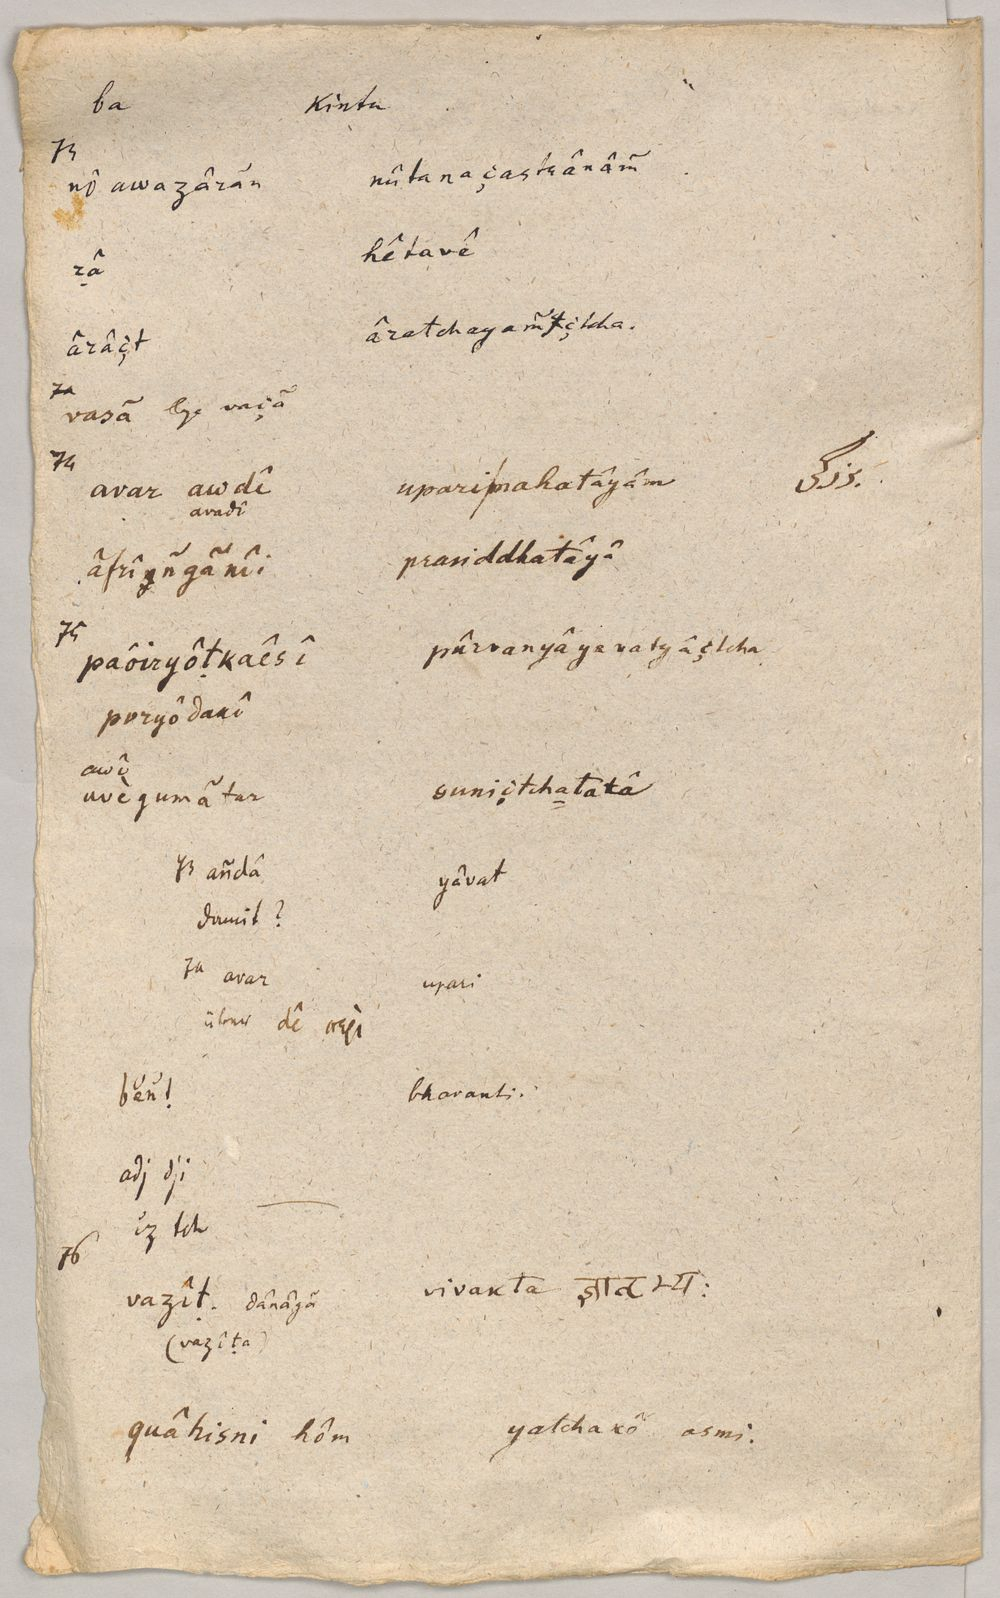 ba kintu
73
nô awazârãn nûtanaçastrânâm̃
râ hêtavê
ârâçt âratchayam̃çtcha.
vasã lege vaçã
74
avar awdî upari mahatâyâm
avadî
âfrîñgãnîi prasiddhatâyâ
75
paôiryôṭkaêsî pûrvanyâyavatyâçtcha
poryôdakî
awê
avègumãtar suniçtchatatâ
73 añdâ yâvat
damit?
74 avar upari
über dê
bẽñt bhavanti.
adj dji
iz tch
76
vazîṭ. dânâgã vivakta
(vazîṭa)
quâhisni hôm yatchakô asmi.